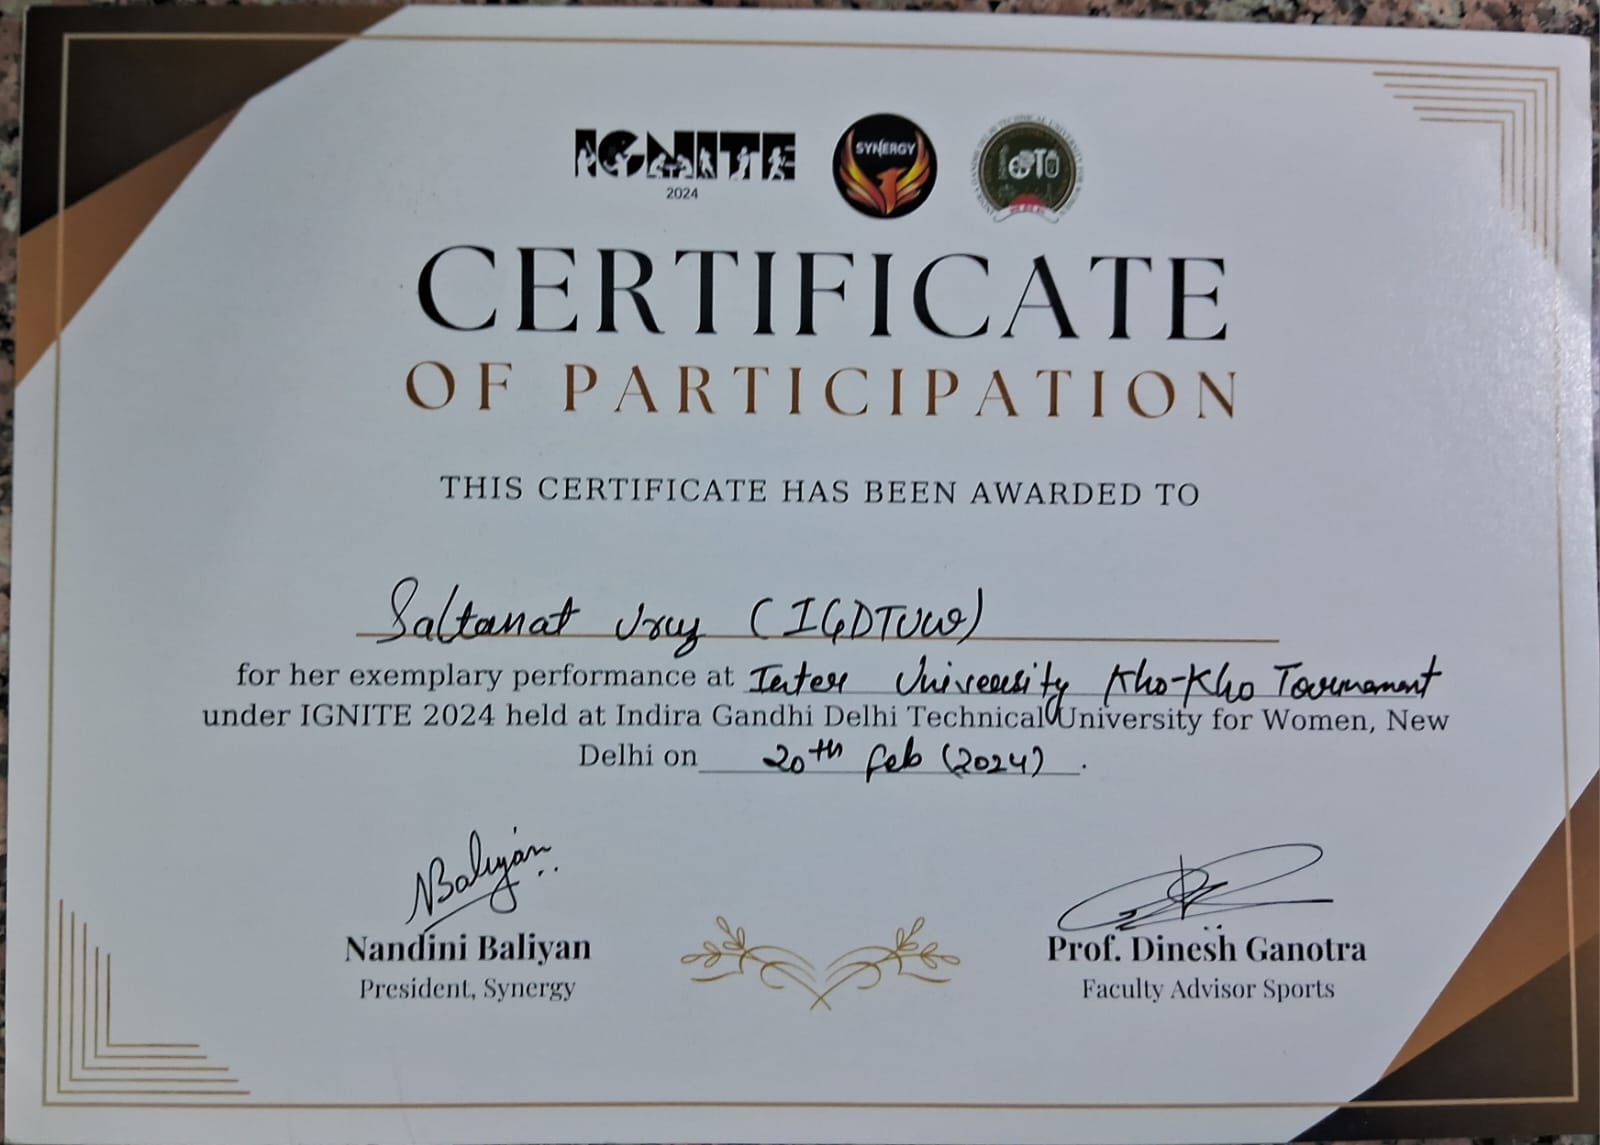 IGNITE
2024
SYNERGY
CERTIFICATE
OF PARTICIPATION
THIS CERTIFICATE HAS BEEN AWARDED TO
Saltanat (IGDTUW)
for her exemplary performance at Inter University Kho-Kho Tournament
under IGNITE 2024 held at Indira Gandhi Delhi Technical University for Women, New
Delhi on 20th Feb (2024) .
NBaliyan
Nandini Baliyan
President, Synergy
Prof. Dinesh Ganotra
Faculty Advisor Sports